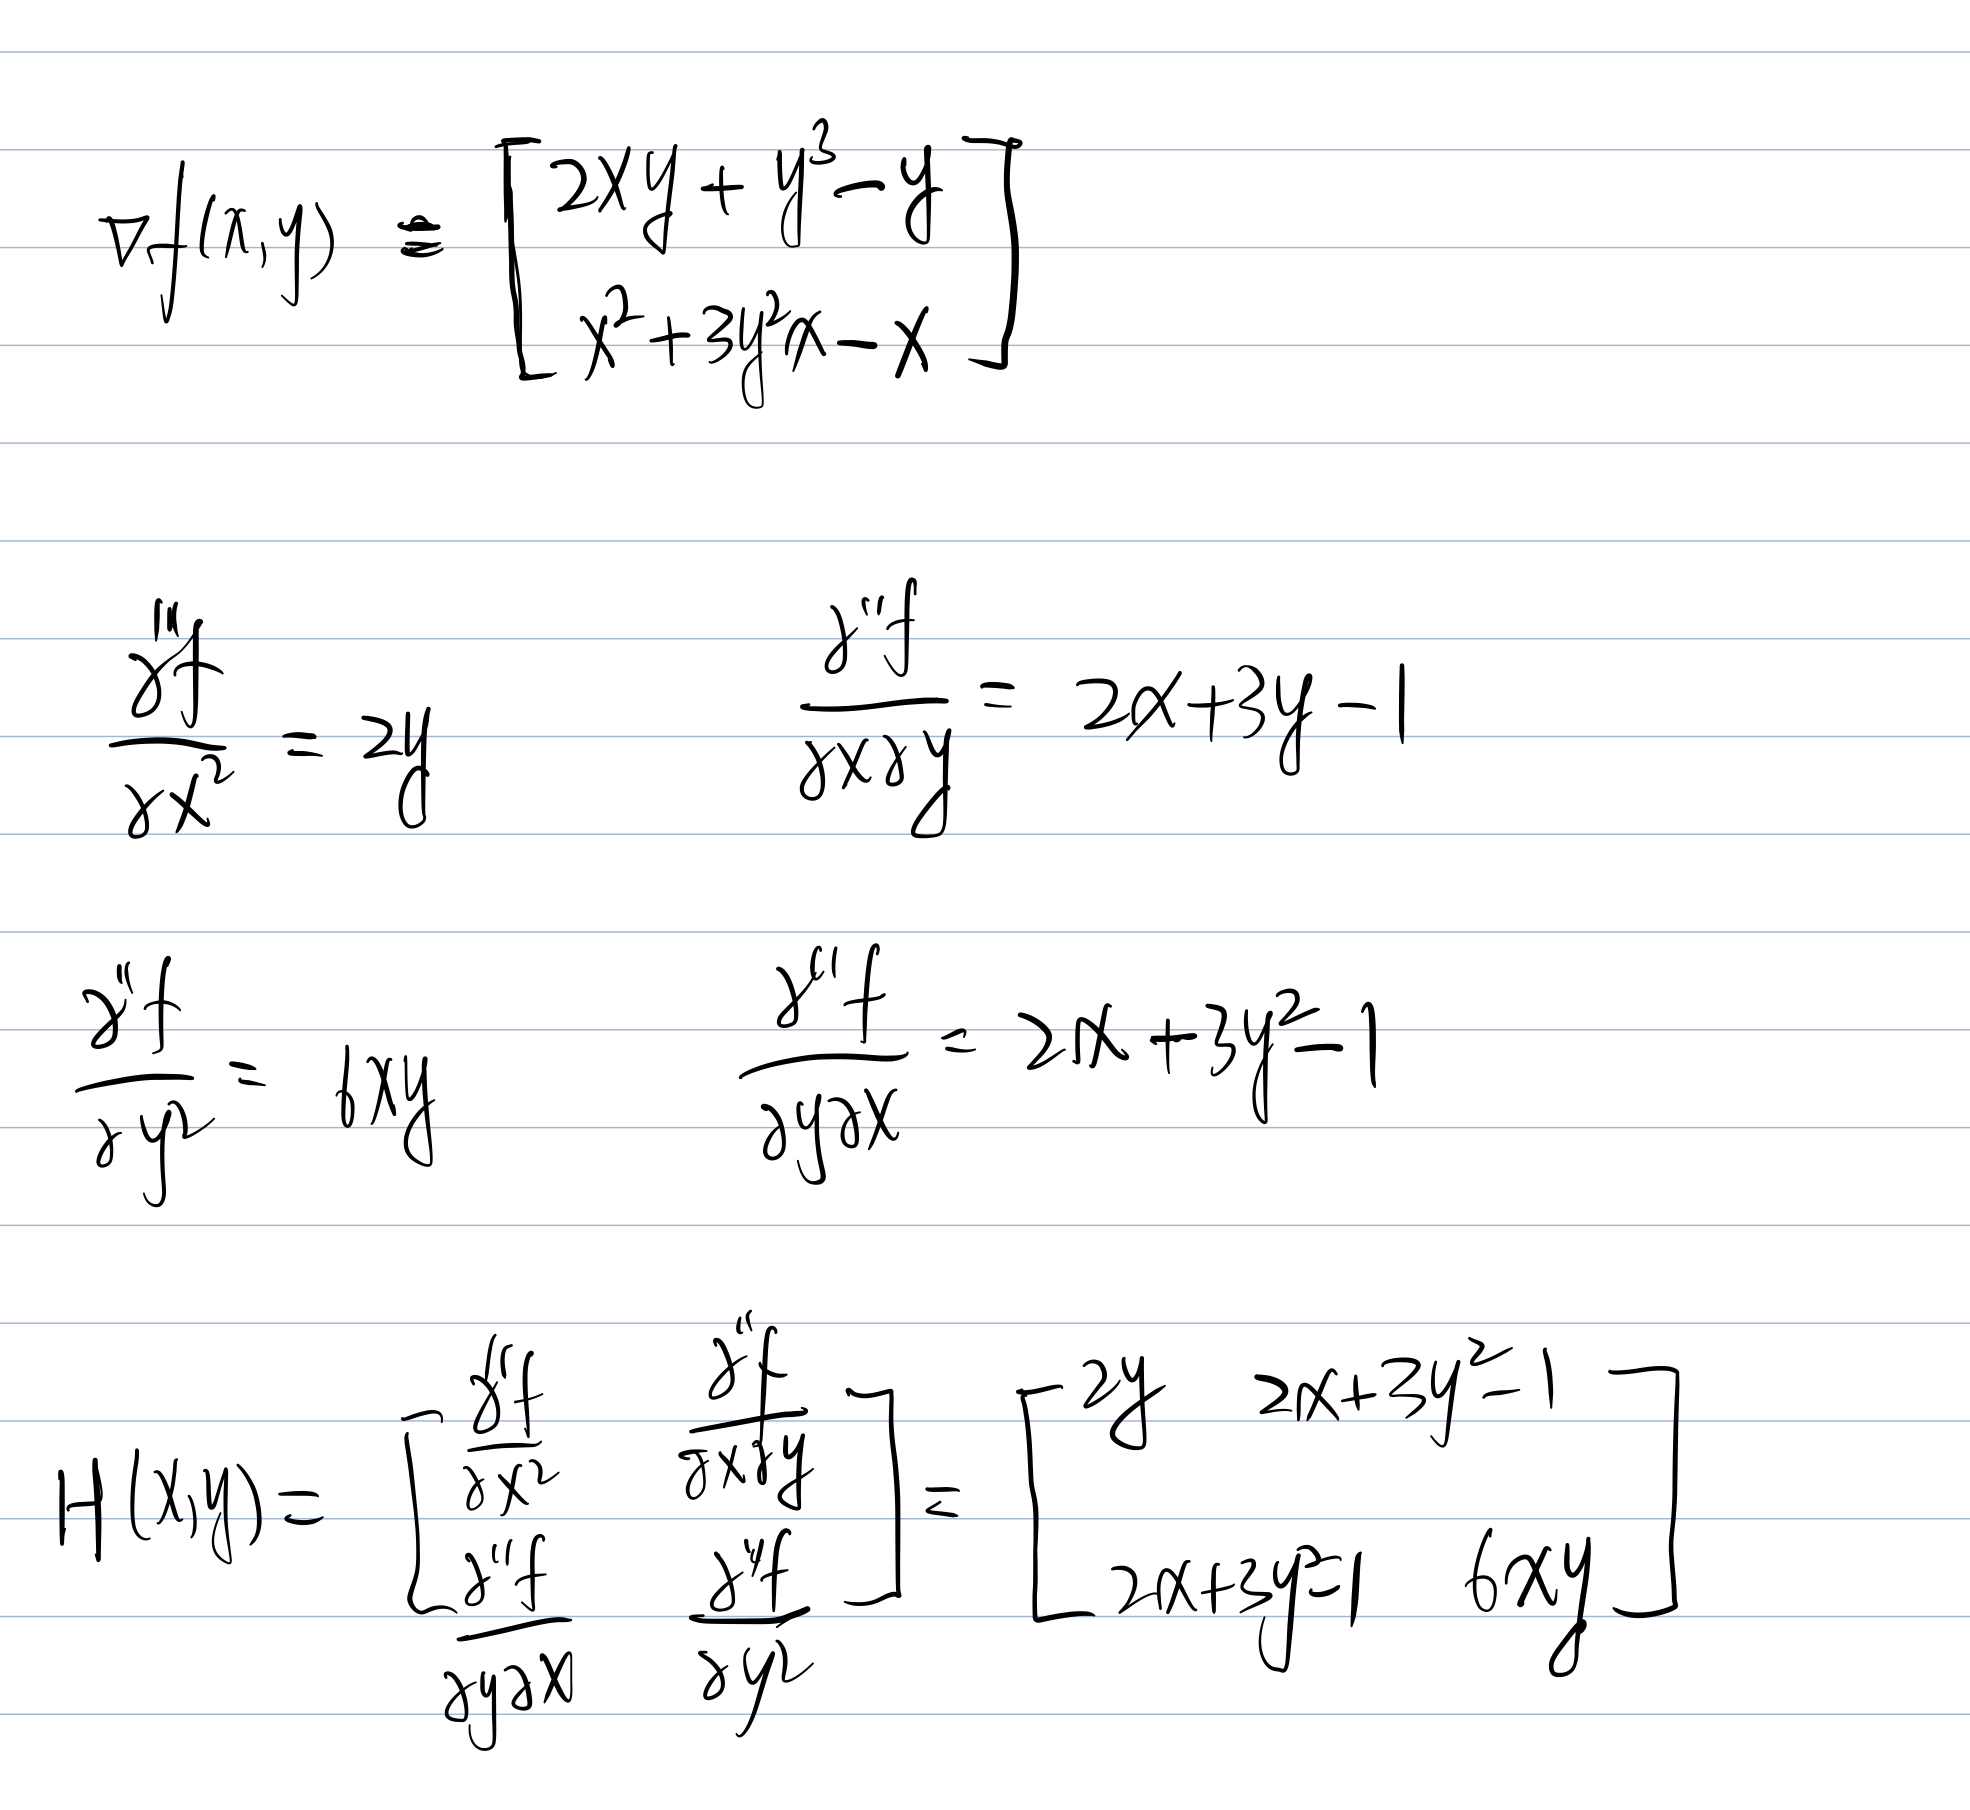 ∇f(x,y) = [ 2xy + y³ − y ; x² + 3y²x − x ]
∂''f/∂x² = 2y    ∂''f/∂x∂y = 2x+3y−1
∂''f/∂y² = 6xy    ∂''f/∂y∂x = 2x+3y²−1
H(x,y) = [ ∂''f/∂x²  ∂''f/∂x∂y ; ∂''f/∂y∂x  ∂''f/∂y² ] = [ 2y  2x+3y²−1 ; 2x+3y²−1  6xy ]